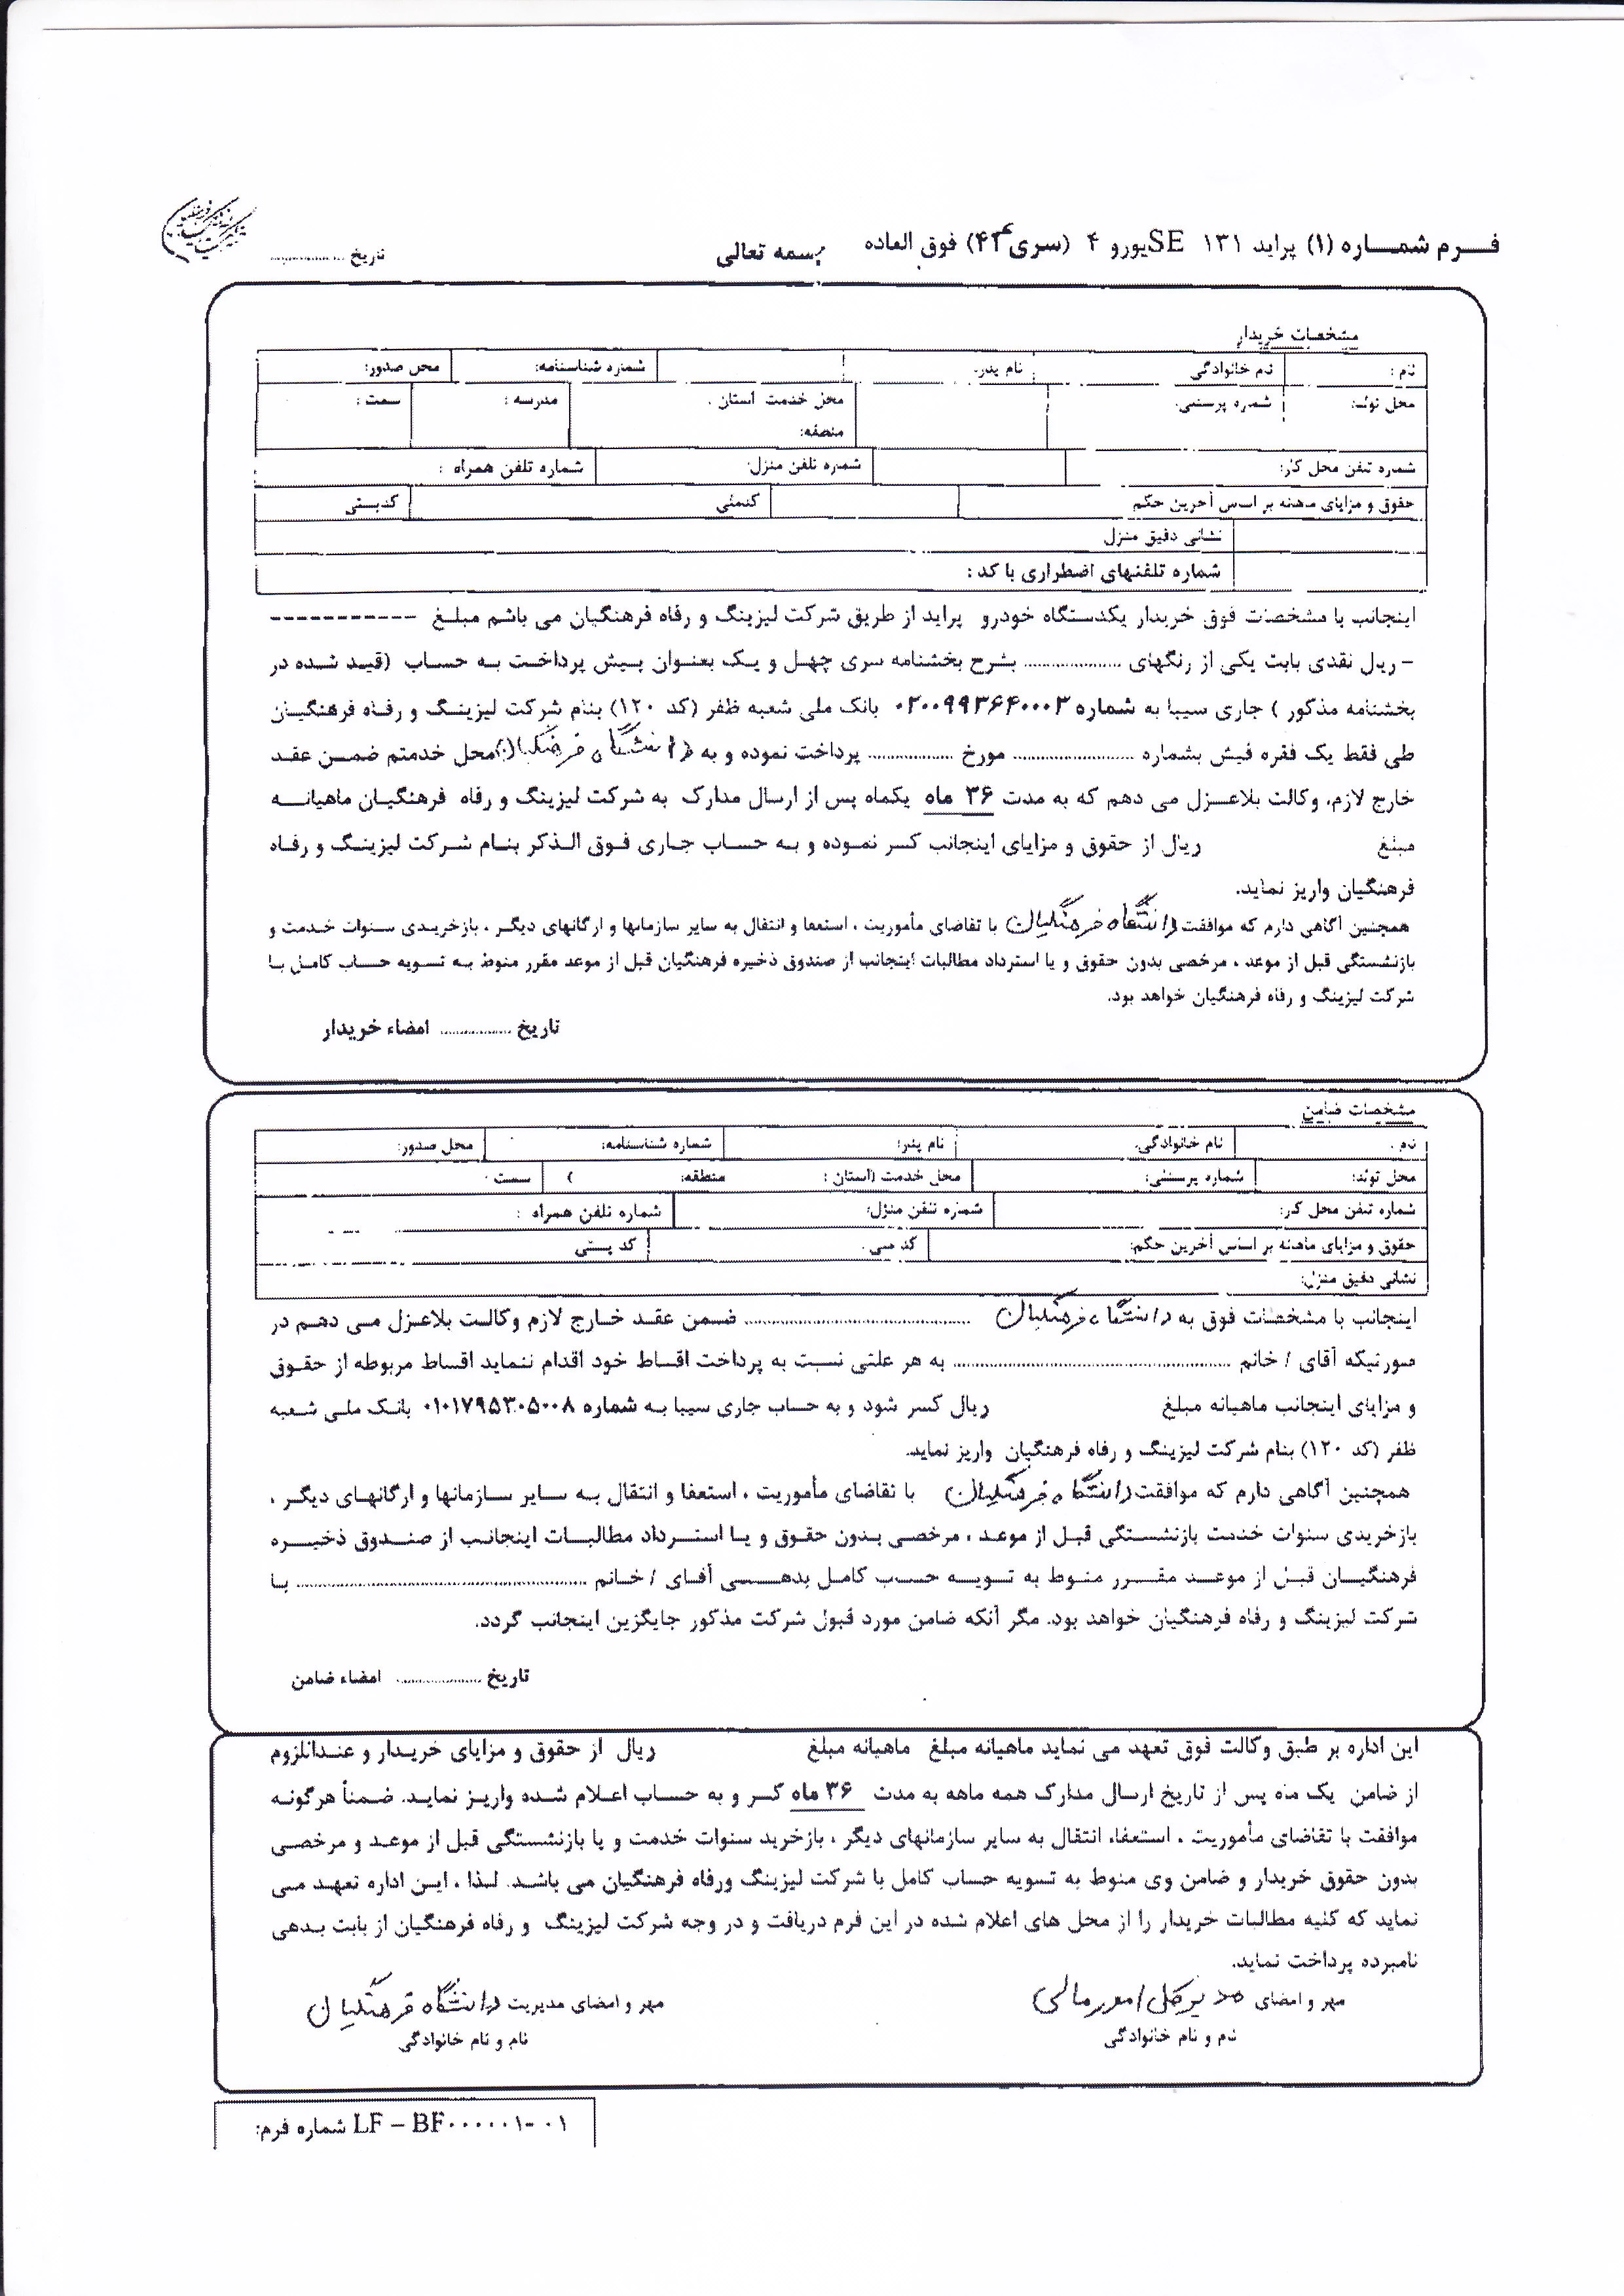 فرم شماره (۱) پراید ۱۳۱ SE یورو ۴ (سری ۴۴) فوق العاده
بسمه تعالی
تاریخ ....................
مشخصات خریدار
نام : نام خانوادگی نام پدر: شماره شناسنامه: محل صدور:
محل تولد: شماره پرسنلی: محل خدمت استان : مدرسه : سمت :
منطقه:
شماره تلفن محل کار: شماره تلفن منزل: شماره تلفن همراه :
حقوق و مزایای ماهانه بر اساس آخرین حکم کدملی کدپستی
نشانی دقیق منزل
شماره تلفنهای اضطراری با کد :
اینجانب با مشخصات فوق خریدار یکدستگاه خودرو پراید از طریق شرکت لیزینگ و رفاه فرهنگیان می باشم مبلغ -----------
- ریال نقدی بابت یکی از رنگهای .................... بشرح بخشنامه سری چهل و یک بعنوان پیش پرداخت به حساب (قید شده در
بخشنامه مذکور ) جاری سیبا به شماره ۰۲۰۰۹۹۳۶۴۰۰۰۳ بانک ملی شعبه ظفر (کد ۱۲۰) بنام شرکت لیزینگ و رفاه فرهنگیان
طی فقط یک فقره فیش بشماره ........................ مورخ .................. پرداخت نموده و به دانشگاه فرهنگیان محل خدمتم ضمن عقد
خارج لازم، وکالت بلاعزل می دهم که به مدت ۳۶ ماه یکماه پس از ارسال مدارک به شرکت لیزینگ و رفاه فرهنگیان ماهیانه
مبلغ ریال از حقوق و مزایای اینجانب کسر نموده و به حساب جاری فوق الذکر بنام شرکت لیزینگ و رفاه
فرهنگیان واریز نماید.
همچنین آگاهی دارم که موافقت دانشگاه فرهنگیان با تقاضای مأموریت ، استعفا و انتقال به سایر سازمانها و ارگانهای دیگر ، بازخریدی سنوات خدمت و
بازنشستگی قبل از موعد ، مرخصی بدون حقوق و یا استرداد مطالبات اینجانب از صندوق ذخیره فرهنگیان قبل از موعد مقرر منوط به تسویه حساب کامل با
شرکت لیزینگ و رفاه فرهنگیان خواهد بود.
تاریخ ................ امضاء خریدار
مشخصات ضامن
نام . نام خانوادگی: نام پدر: شماره شناسنامه: محل صدور:
محل تولد: شماره پرسنلی: محل خدمت (استان : منطقه: ) سمت :
شماره تلفن محل کار: شماره تلفن منزل: شماره تلفن همراه :
حقوق و مزایای ماهانه بر اساس آخرین حکم: کد ملی . کد پستی
نشانی دقیق منزل:
اینجانب با مشخصات فوق به دانشگاه فرهنگیان ............................................. ضمن عقد خارج لازم وکالت بلاعزل می دهم در
صورتیکه آقای / خانم ........................................................ به هر علتی نسبت به پرداخت اقساط خود اقدام ننماید اقساط مربوطه از حقوق
و مزایای اینجانب ماهیانه مبلغ ریال کسر شود و به حساب جاری سیبا به شماره ۰۱۰۱۷۹۵۳۰۵۰۰۸ بانک ملی شعبه
ظفر (کد ۱۲۰) بنام شرکت لیزینگ و رفاه فرهنگیان واریز نماید.
همچنین آگاهی دارم که موافقت دانشگاه فرهنگیان با تقاضای مأموریت ، استعفا و انتقال به سایر سازمانها و ارگانهای دیگر ،
بازخریدی سنوات خدمت بازنشستگی قبل از موعد ، مرخصی بدون حقوق و یا استرداد مطالبات اینجانب از صندوق ذخیره
فرهنگیان قبل از موعد مقرر منوط به تسویه حسب کامل بدهی آقای / خانم .......................................................... با
شرکت لیزینگ و رفاه فرهنگیان خواهد بود. مگر آنکه ضامن مورد قبول شرکت مذکور جایگزین اینجانب گردد.
تاریخ .................. امضاء ضامن
این اداره بر طبق وکالت فوق تعهد می نماید ماهیانه مبلغ ماهیانه مبلغ ریال از حقوق و مزایای خریدار و عندالزوم
از ضامن یک ماه پس از تاریخ ارسال مدارک همه ماهه به مدت ۳۶ ماه کسر و به حساب اعلام شده واریز نماید. ضمناً هرگونه
موافقت با تقاضای مأموریت ، استعفاء انتقال به سایر سازمانهای دیگر ، بازخرید سنوات خدمت و یا بازنشستگی قبل از موعد و مرخصی
بدون حقوق خریدار و ضامن وی منوط به تسویه حساب کامل با شرکت لیزینگ ورفاه فرهنگیان می باشد. لذا ، این اداره تعهد می
نماید که کلیه مطالبات خریدار را از محل های اعلام شده در این فرم دریافت و در وجه شرکت لیزینگ و رفاه فرهنگیان از بابت بدهی
نامبرده پرداخت نماید.
مهر و امضای مدیرکل امور مالی مهر و امضای مدیریت دانشگاه فرهنگیان
نام و نام خانوادگی نام و نام خانوادگی
شماره فرم: LF – BF۰۰۰۰۰۱-۰۱